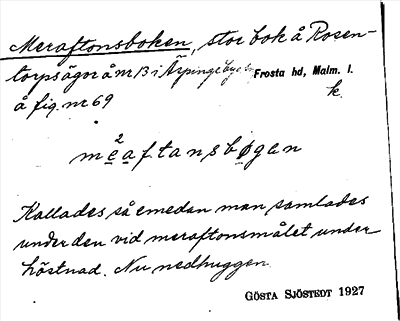 Meraftonsboken, stor bok å Rosen-
torpsägor å nr 13 i Ärpinge by
Frosta hd, Malm. l.
å fig. nr 69 k.
me²aftansbøgen
Kallades så emedan man samlades
under den vid meraftonsmålet under
höstnad. Nu nedhuggen.
GÖSTA SJÖSTEDT 1927